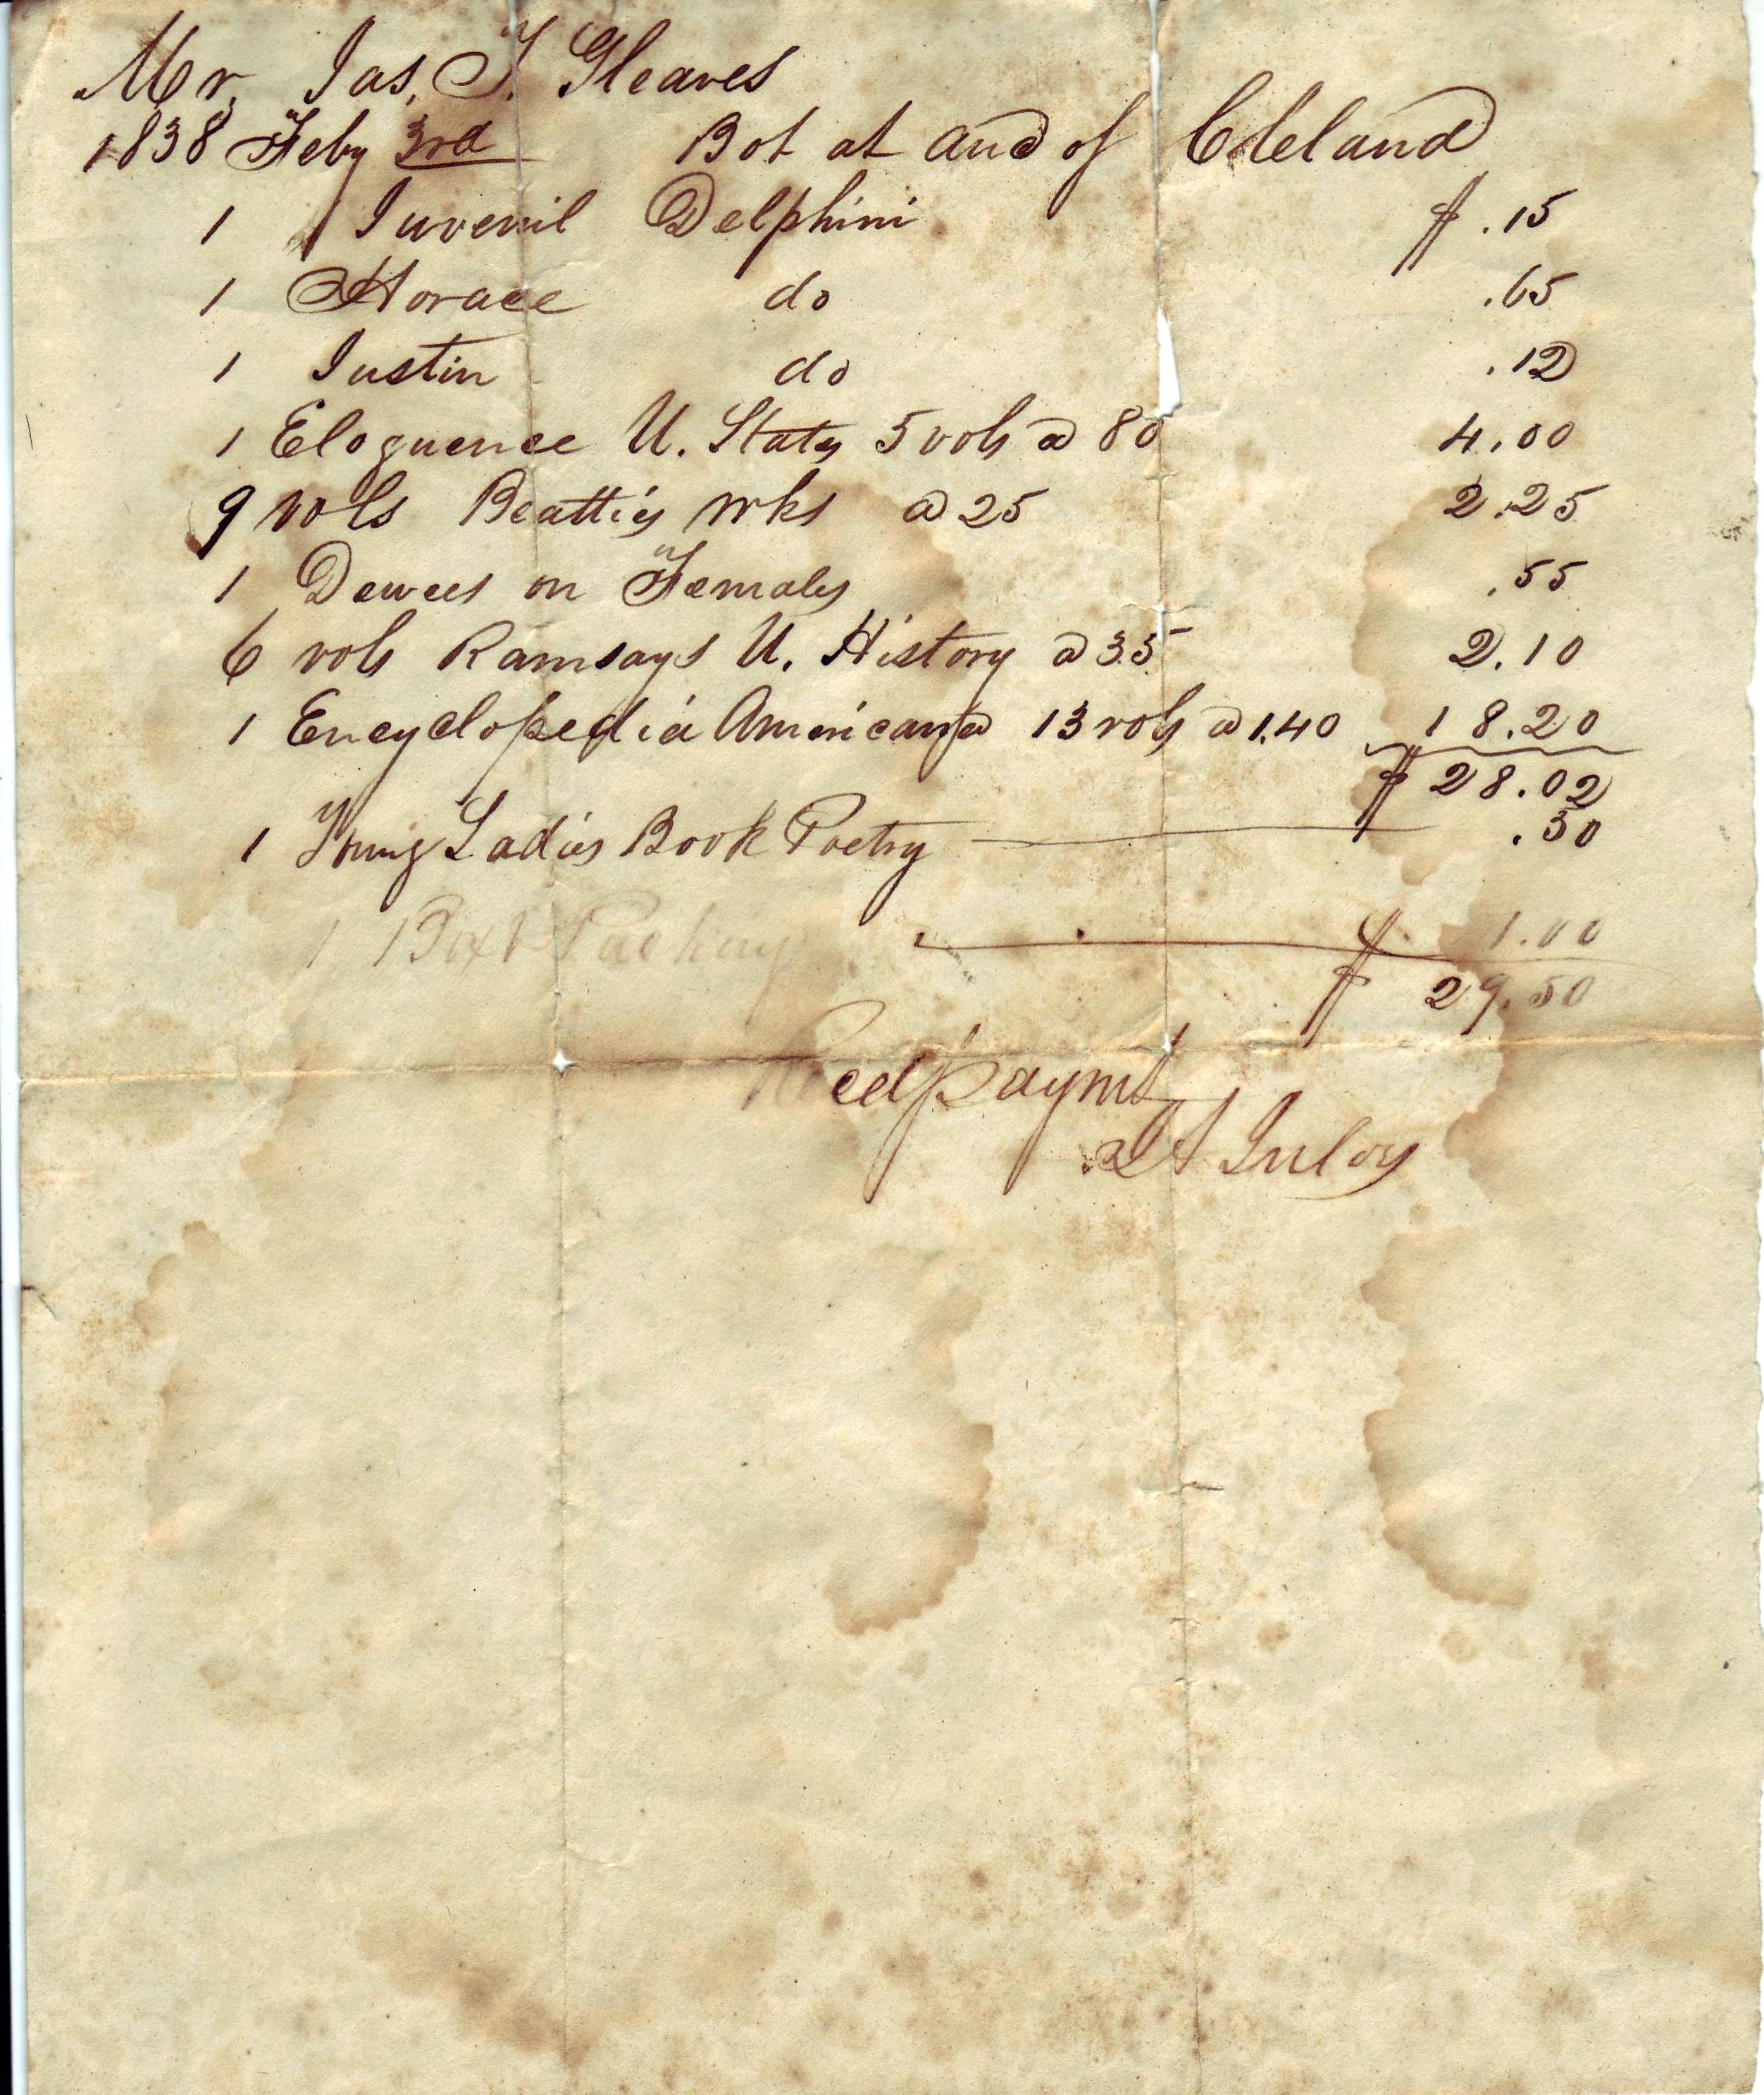 Mr. Jas. T. Gleaves
1838 Feby 3rd Bot at Auc of Cleland
1 Juvenil Delphini $ .15
1 Horace do .65
1 Justin do .12
1 Eloquence U. States 5 vols @ 80 4.00
9 vols Beatties wks @ 25 2.25
1 Dewees on Females .55
6 vols Ramsays U. History @ 35 2.10
1 Encyclopedia Americana 13 vols @ 1.40 18.20
$ 28.02
1 Young Ladies Book Poetry .50
1 Box & Packing 1.00
$ 29.50
Recd paymt